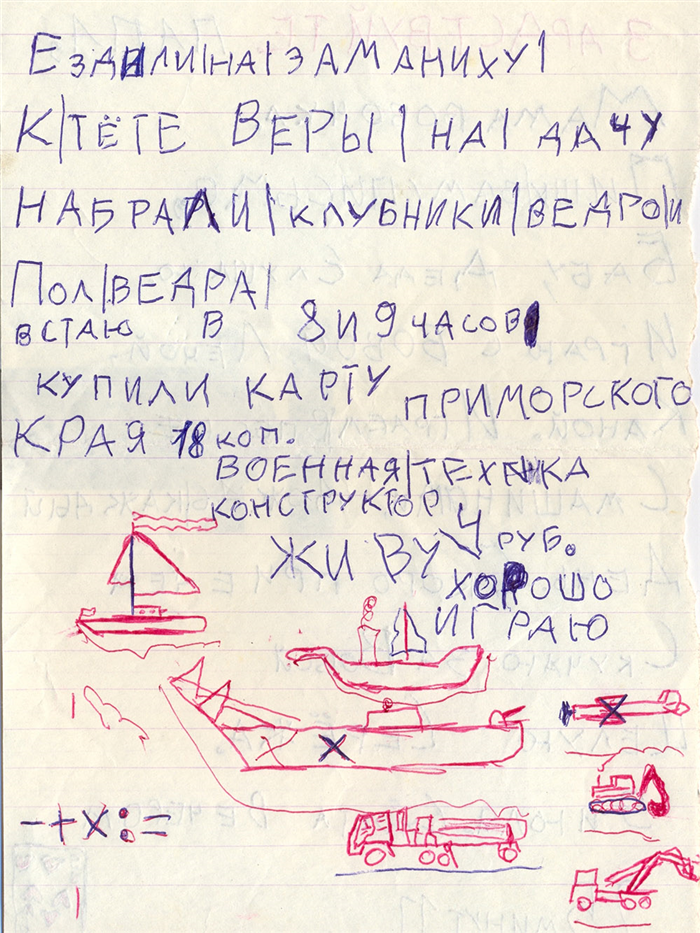 ЕЗДИЛИ|НА|ЗАМАНИХУ|
К|ТЁТЕ ВЕРЫ|НА|ДАЧУ
НАБРАЛИ|КЛУБНИКИ|ВЕДРО|И
ПОЛ|ВЕДРА|
ВСТАЮ В 8 И 9 ЧАСОВ
КУПИЛИ КАРТУ ПРИМОРСКОГО
КРАЯ 18 КОП.
ВОЕННАЯ|ТЕХНИКА
КОНСТРУКТОР 4 РУБ.
ЖИВУ ХОРОШО
ИГРАЮ
-+×:=